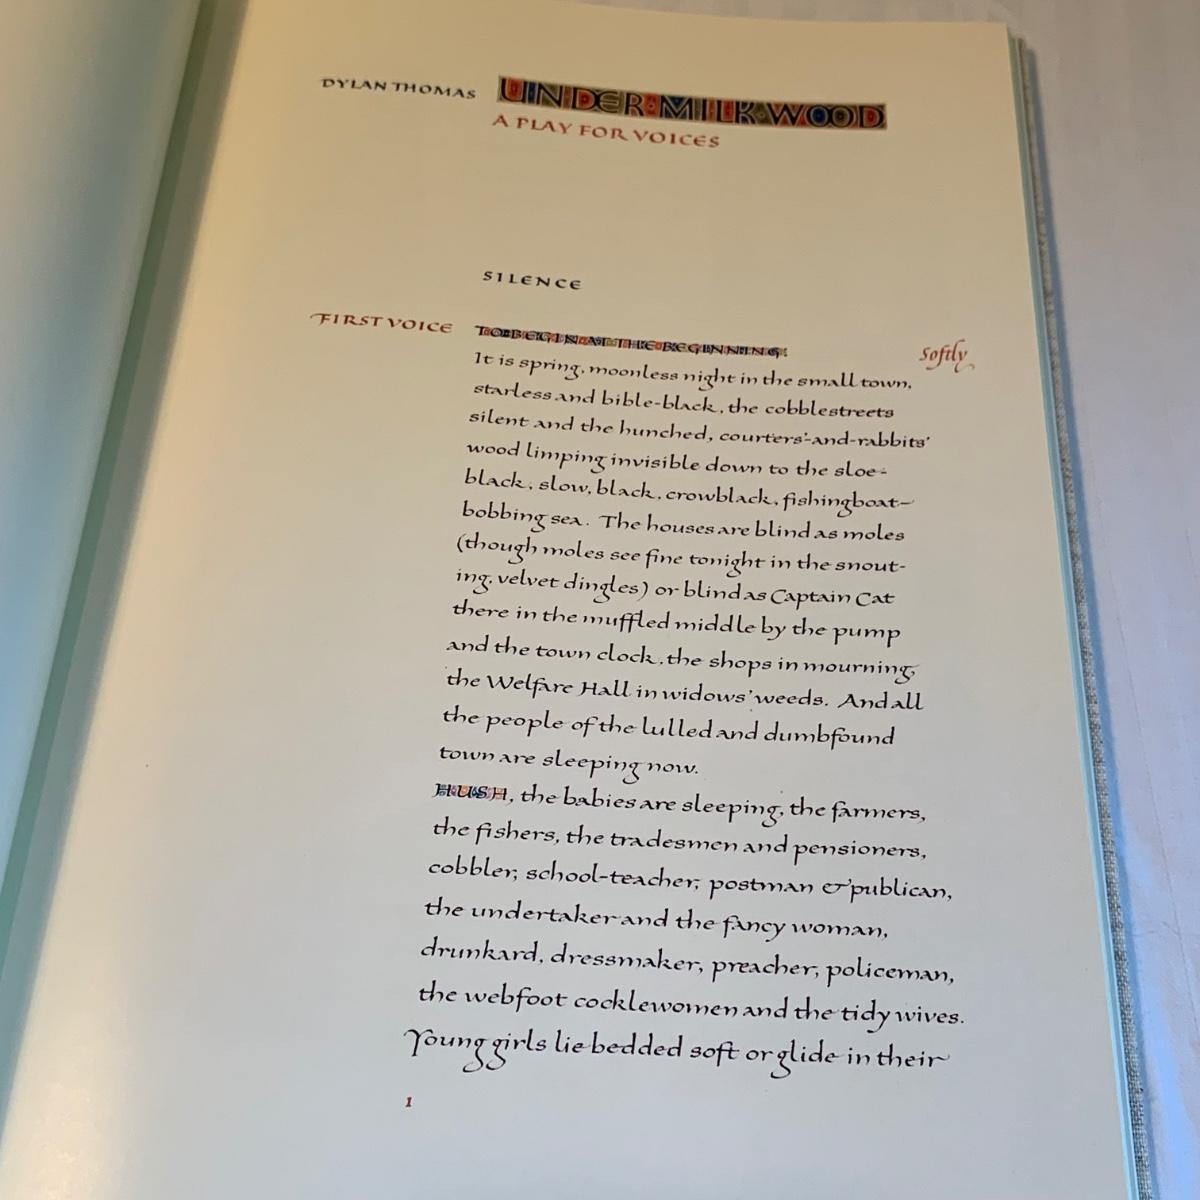 DYLAN THOMAS UNDER·MILK·WOOD
A PLAY FOR VOICES
SILENCE
FIRST VOICE TO·BEGIN·AT·THE·BEGINNING: Softly
It is spring, moonless night in the small town,
starless and bible-black, the cobblestreets
silent and the hunched, courters'-and-rabbits'
wood limping invisible down to the sloe-
black, slow, black, crowblack, fishingboat-
bobbing sea. The houses are blind as moles
(though moles see fine tonight in the snout-
ing, velvet dingles) or blind as Captain Cat
there in the muffled middle by the pump
and the town clock, the shops in mourning,
the Welfare Hall in widows' weeds. And all
the people of the lulled and dumbfound
town are sleeping now.
HUSH, the babies are sleeping, the farmers,
the fishers, the tradesmen and pensioners,
cobbler, school-teacher, postman & publican,
the undertaker and the fancy woman,
drunkard, dressmaker, preacher, policeman,
the webfoot cocklewomen and the tidy wives.
Young girls lie bedded soft or glide in their
1